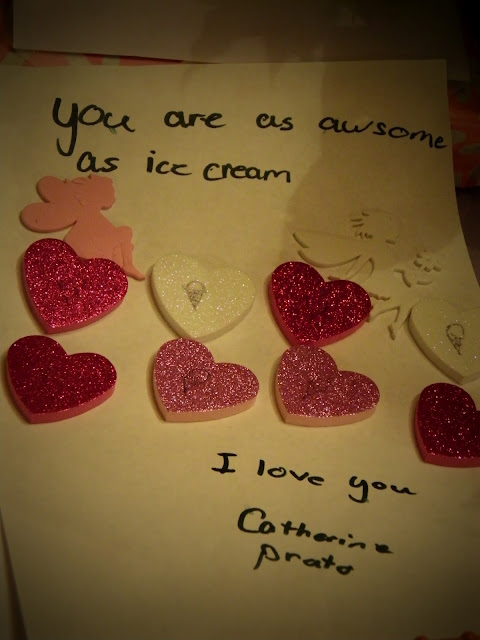 You are as awsome
as ice cream
I love you
Catherine
Prato